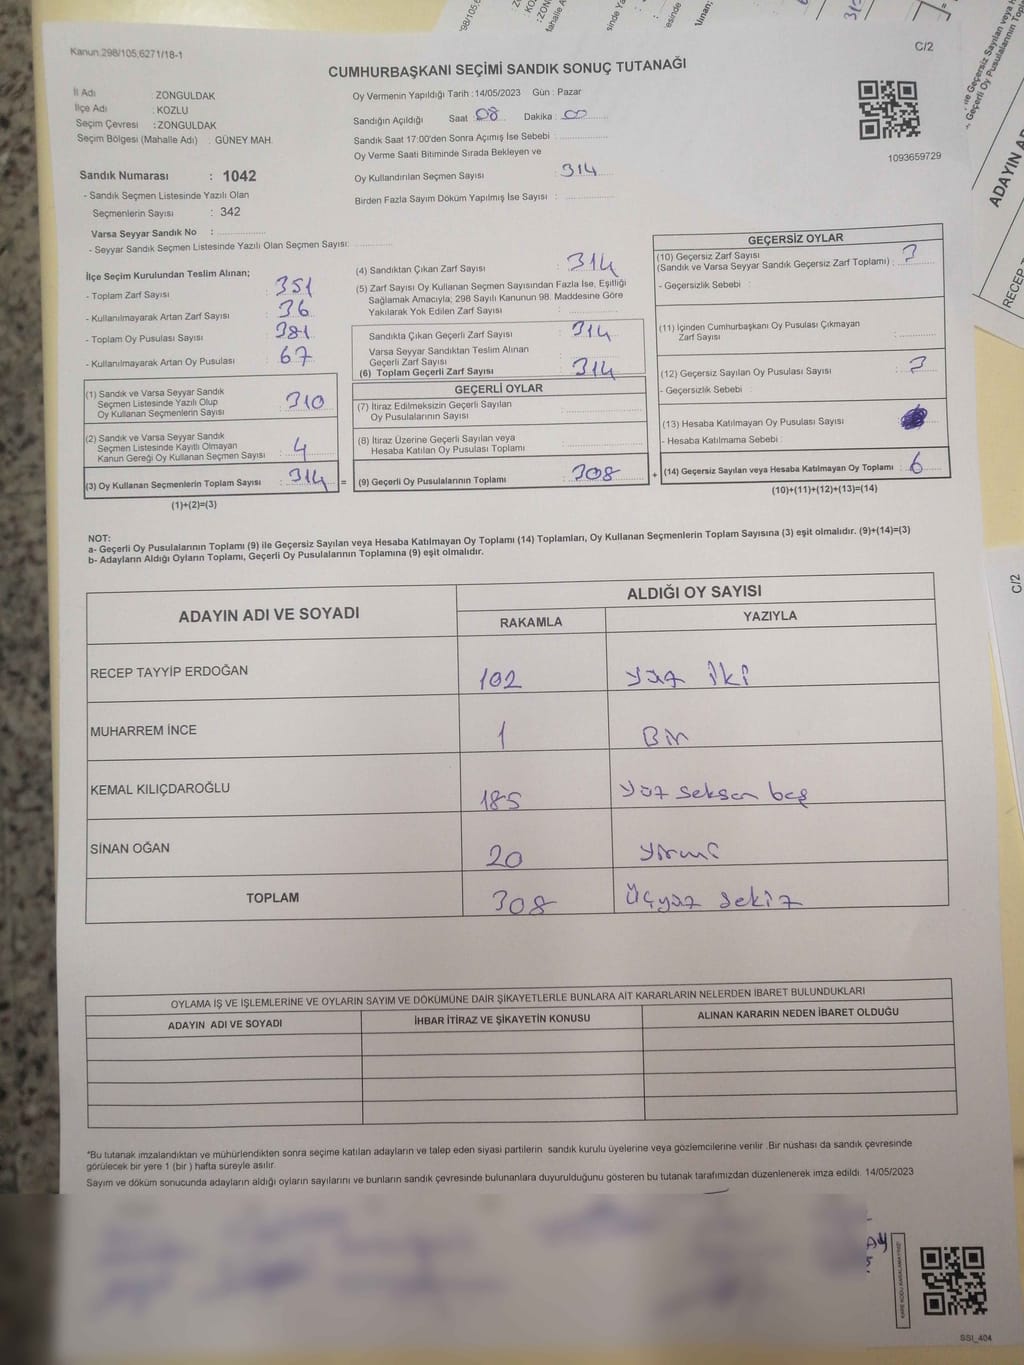 Kanun.298/105;6271/18-1
C/2
CUMHURBAŞKANI SEÇİMİ SANDIK SONUÇ TUTANAĞI
İl Adı : ZONGULDAK
İlçe Adı : KOZLU
Seçim Çevresi : ZONGULDAK
Seçim Bölgesi (Mahalle Adı) : GÜNEY MAH.
Sandık Numarası : 1042
- Sandık Seçmen Listesinde Yazılı Olan
Seçmenlerin Sayısı : 342
Varsa Seyyar Sandık No :
- Seyyar Sandık Seçmen Listesinde Yazılı Olan Seçmen Sayısı:
Oy Vermenin Yapıldığı Tarih : 14/05/2023 Gün : Pazar
Sandığın Açıldığı Saat : 08 Dakika : 00
Sandık Saat 17:00'den Sonra Açımış İse Sebebi :
Oy Verme Saati Bitiminde Sırada Bekleyen ve
Oy Kullandırılan Seçmen Sayısı : 314
Birden Fazla Sayım Döküm Yapılmış İse Sayısı :
1093659729
İlçe Seçim Kurulundan Teslim Alınan;
- Toplam Zarf Sayısı : 351
- Kullanılmayarak Artan Zarf Sayısı : 36
- Toplam Oy Pusulası Sayısı : 381
- Kullanılmayarak Artan Oy Pusulası : 67
(1) Sandık ve Varsa Seyyar Sandık
Seçmen Listesinde Yazılı Olup
Oy Kullanan Seçmenlerin Sayısı : 310
(2) Sandık ve Varsa Seyyar Sandık
Seçmen Listesinde Kayıtlı Olmayan
Kanun Gereği Oy Kullanan Seçmen Sayısı : 4
(3) Oy Kullanan Seçmenlerin Toplam Sayısı : 314 =
(1)+(2)=(3)
(4) Sandıktan Çıkan Zarf Sayısı : 314
(5) Zarf Sayısı Oy Kullanan Seçmen Sayısından Fazla İse, Eşitliği
Sağlamak Amacıyla; 298 Sayılı Kanunun 98. Maddesine Göre
Yakılarak Yok Edilen Zarf Sayısı :
Sandıkta Çıkan Geçerli Zarf Sayısı : 314
Varsa Seyyar Sandıktan Teslim Alınan
Geçerli Zarf Sayısı :
(6) Toplam Geçerli Zarf Sayısı : 314
GEÇERLİ OYLAR
(7) İtiraz Edilmeksizin Geçerli Sayılan
Oy Pusulalarının Sayısı :
(8) İtiraz Üzerine Geçerli Sayılan veya
Hesaba Katılan Oy Pusulası Toplamı :
(9) Geçerli Oy Pusulalarının Toplamı : 308 +
GEÇERSİZ OYLAR
(10) Geçersiz Zarf Sayısı
(Sandık ve Varsa Seyyar Sandık Geçersiz Zarf Toplamı) : 3
- Geçersizlik Sebebi :
(11) İçinden Cumhurbaşkanı Oy Pusulası Çıkmayan
Zarf Sayısı :
(12) Geçersiz Sayılan Oy Pusulası Sayısı : 3
- Geçersizlik Sebebi :
(13) Hesaba Katılmayan Oy Pusulası Sayısı :
- Hesaba Katılmama Sebebi :
(14) Geçersiz Sayılan veya Hesaba Katılmayan Oy Toplamı : 6
(10)+(11)+(12)+(13)=(14)
NOT:
a- Geçerli Oy Pusulalarının Toplamı (9) ile Geçersiz Sayılan veya Hesaba Katılmayan Oy Toplamı (14) Toplamları, Oy Kullanan Seçmenlerin Toplam Sayısına (3) eşit olmalıdır. (9)+(14)=(3)
b- Adayların Aldığı Oyların Toplamı, Geçerli Oy Pusulalarının Toplamına (9) eşit olmalıdır.
ADAYIN ADI VE SOYADI ALDIĞI OY SAYISI
RAKAMLA YAZIYLA
RECEP TAYYİP ERDOĞAN 102 yüz iki
MUHARREM İNCE 1 Bir
KEMAL KILIÇDAROĞLU 185 yüz seksen beş
SİNAN OĞAN 20 yirmi
TOPLAM 308 Üçyüz sekiz
OYLAMA İŞ VE İŞLEMLERİNE VE OYLARIN SAYIM VE DÖKÜMÜNE DAİR ŞİKAYETLERLE BUNLARA AİT KARARLARIN NELERDEN İBARET BULUNDUKLARI
ADAYIN ADI VE SOYADI İHBAR İTİRAZ VE ŞİKAYETİN KONUSU ALINAN KARARIN NEDEN İBARET OLDUĞU
*Bu tutanak imzalandıktan ve mühürlendikten sonra seçime katılan adayların ve talep eden siyasi partilerin sandık kurulu üyelerine veya gözlemcilerine verilir .Bir nüshası da sandık çevresinde
görülecek bir yere 1 (bir ) hafta süreyle asılır.
Sayım ve döküm sonucunda adayların aldığı oyların sayılarını ve bunların sandık çevresinde bulunanlara duyurulduğunu gösteren bu tutanak tarafımızdan düzenlenerek imza edildi. 14/05/2023
SSI_404
C/2
ADAYIN
RECEP